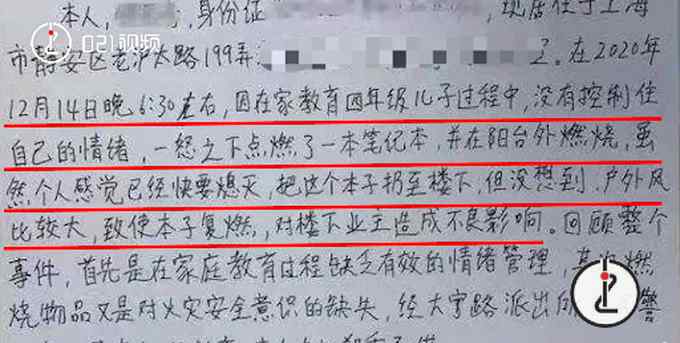 021视频
本人,身份证,现居住于上海
市静安区老沪太路199弄 在2020年
12月14日晚6:30左右,因在家教育四年级儿子过程中,没有控制住
自己的情绪,一怒之下点燃了一本笔记本,并在阳台外燃烧,虽
然个人感觉已经快要熄灭,把这个本子扔至楼下,但没想到,户外风
比较大,致使本子复燃,对楼下业主造成不良影响。回顾整个
事件,首先是在家庭教育过程缺乏有效的情绪管理,其 燃
烧物品又是对火灾安全意识的缺失,经大宁路派出 警